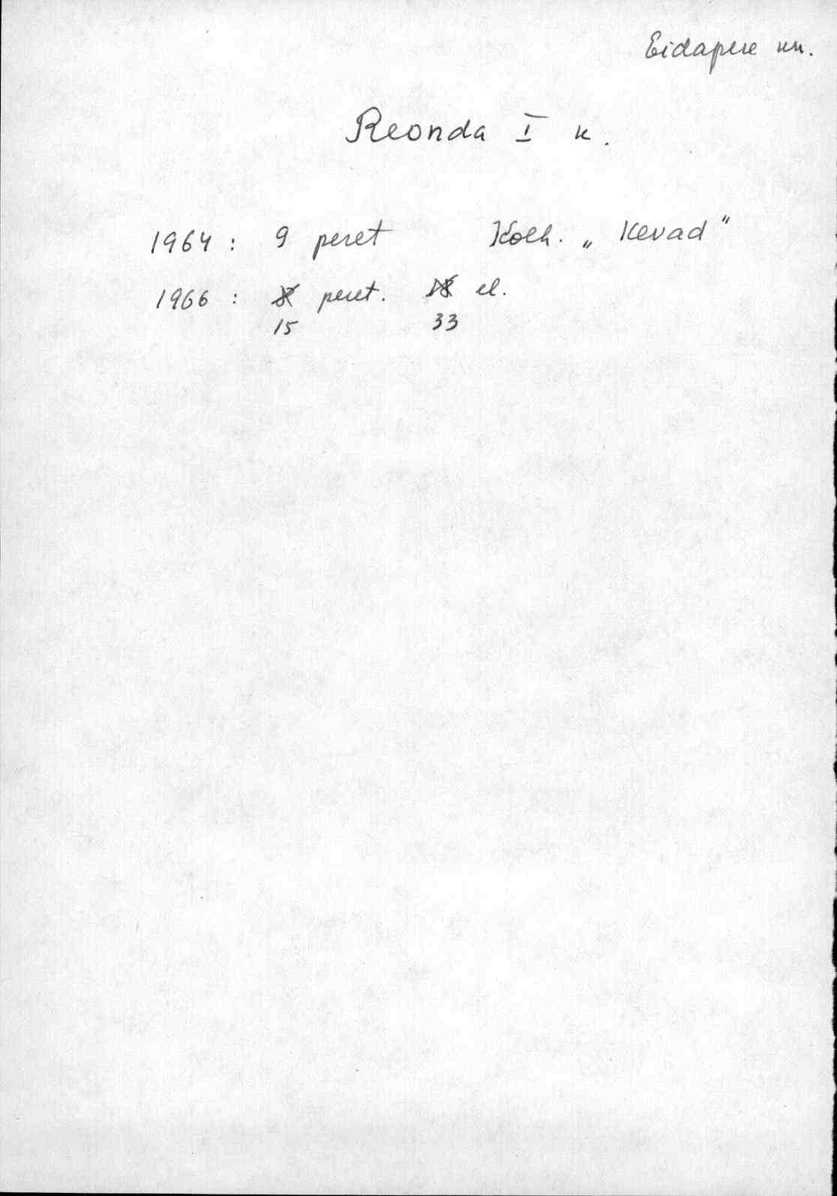 Eidapere kn.
Reonda I k.
1964 : 9 peret Kolh. „Kevad"
1966 : 8 peret. 18 el.
15 33